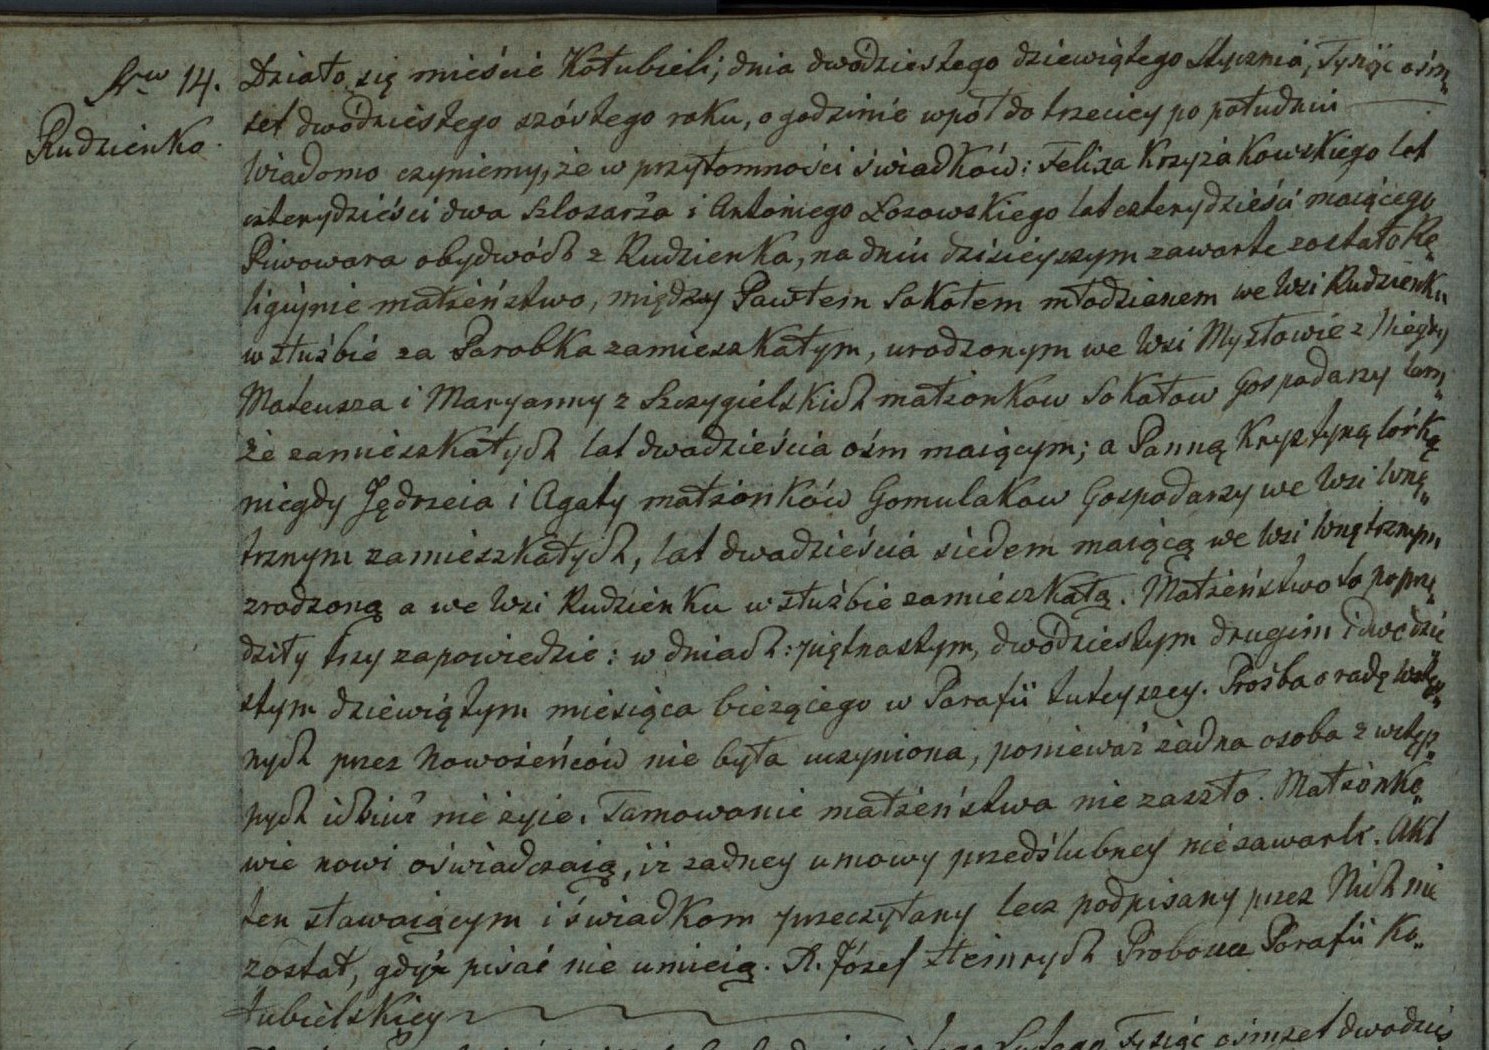 Nrw 14.
Rudzienko.
Działo się mieście Kołubieli; dnia dwódziestego dziewiątego Stycznia, Tysiąc ośm„
set dwódziestego szóstego roku, o godzinie wpół do trzeciey po południu
Wiadomo czyniemy, że w przytomności świadków: Felixa Krzyżakowskiego lat
czterydzieści dwa Szlosarza i Antoniego Łosowskiego lat czterydzieści maiącego
Piwowara obydwóch z Rudzienka, na dniu dzisieyszym zawarte zostało Re„
ligijnie małżeństwo, między Pawłem Sokołem młodzianem we Wsi Rudzienku„
w służbie za Parobka zamieszkałym, urodzonym we Wsi Mysłowie z Niegdy
Mateusza i Maryanny z Szczygielskich małżonkow Sokołow Gospodarzy tam„
że zamieszkałych lat dwadzieścia ośm maiącym; a Panną Krystyną córką
niegdy Jędrzeia i Agaty małżonków Gomulakow Gospodarzy we Wsi Wnę„
trznym zamieszkałych, lat dwadzieścia siedem maiącą we Wsi Wnętrznym„
zrodzoną a we Wsi Rudzienku w służbie zamieszkałą. Małżeństwo to poprze„
dziły trzy zapowiedzie: w dniach: piętnastym, dwódziestym drugim i dwódzie
stym dziewiątym miesiąca bieżącego w Parafii tuteyszey. Prośba o radę wstęp„
nych przez Nowożeńców nie była uczyniona, ponieważ żadna osoba z wstęp„
nych ich iuż nie żyie. Tamowanie małżeństwa nie zaszło. Małżonko„
wie nowi oświadczaią, iż żadney umowy przedślubney nie zawarli. Akt
ten stawaiącym i świadkom przeczytany lecz podpisany przez Nich nie
został, gdyż pisać nie umieią. X. Józef Heinrych Proboszcz Parafii Ko„
łubielskiey
Tysiąc ośmset dwodzies